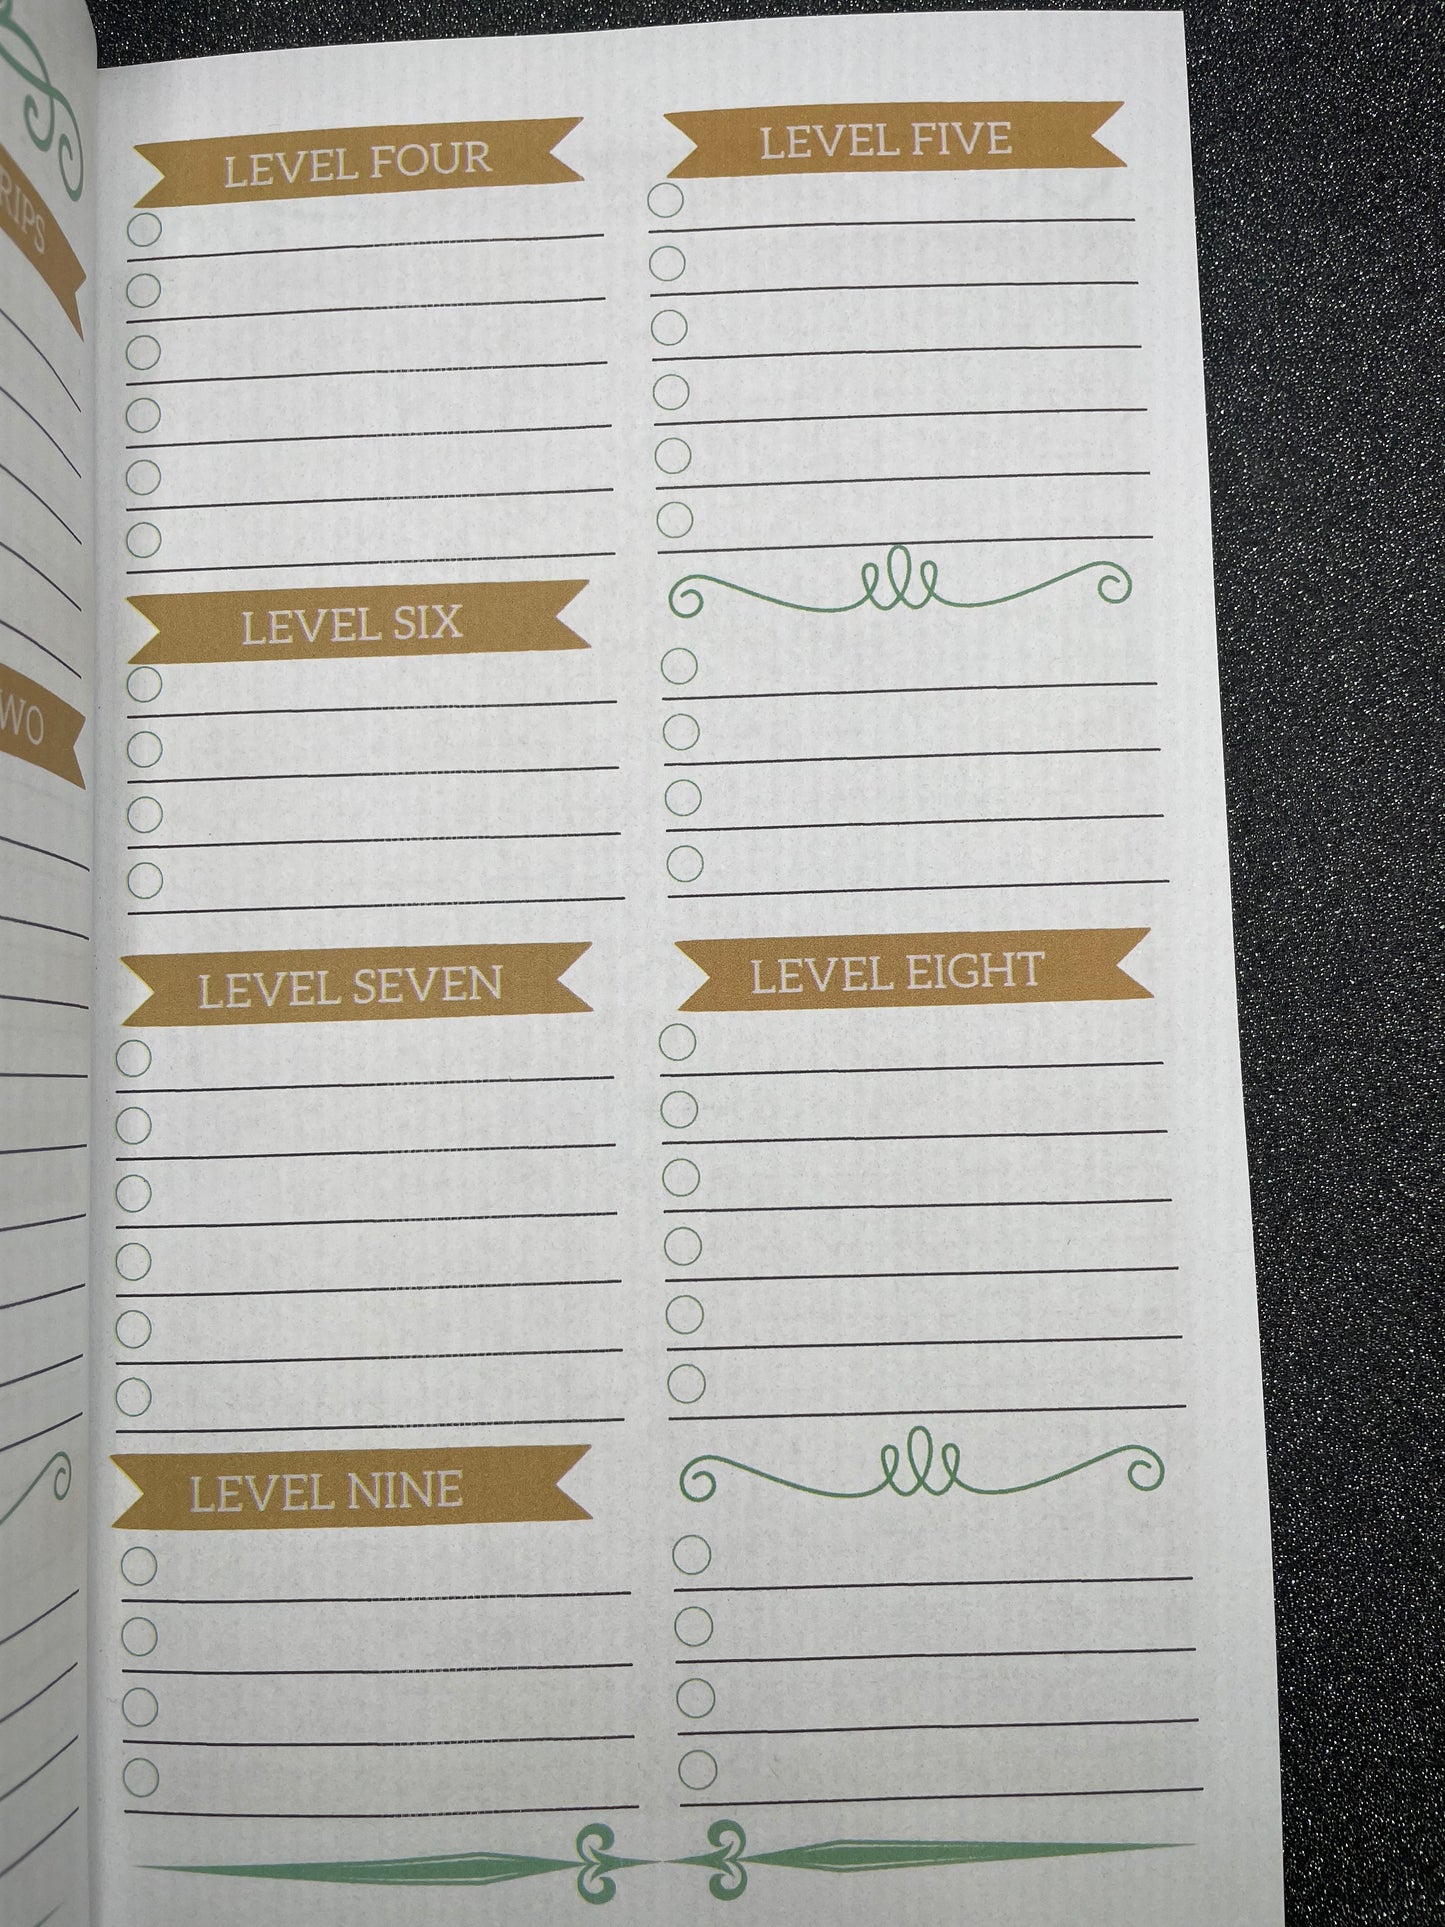 RIPS
WO
LEVEL FOUR
LEVEL FIVE
LEVEL SIX
LEVEL SEVEN
LEVEL EIGHT
LEVEL NINE